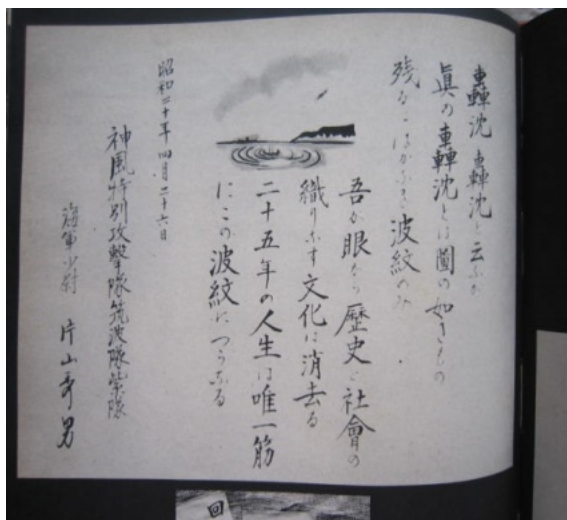 轟沈轟沈と云ふが
真の轟沈とは圖の如きもの
残るはかなき波紋のみ
吾が眼から歴史と社會の
織りなす文化は消去る
二十五年の人生は唯一筋
にこの波紋につらなる
昭和二十年四月二十六日
神風特別攻撃隊筑波隊紫隊
海軍少尉 片山秀男
回